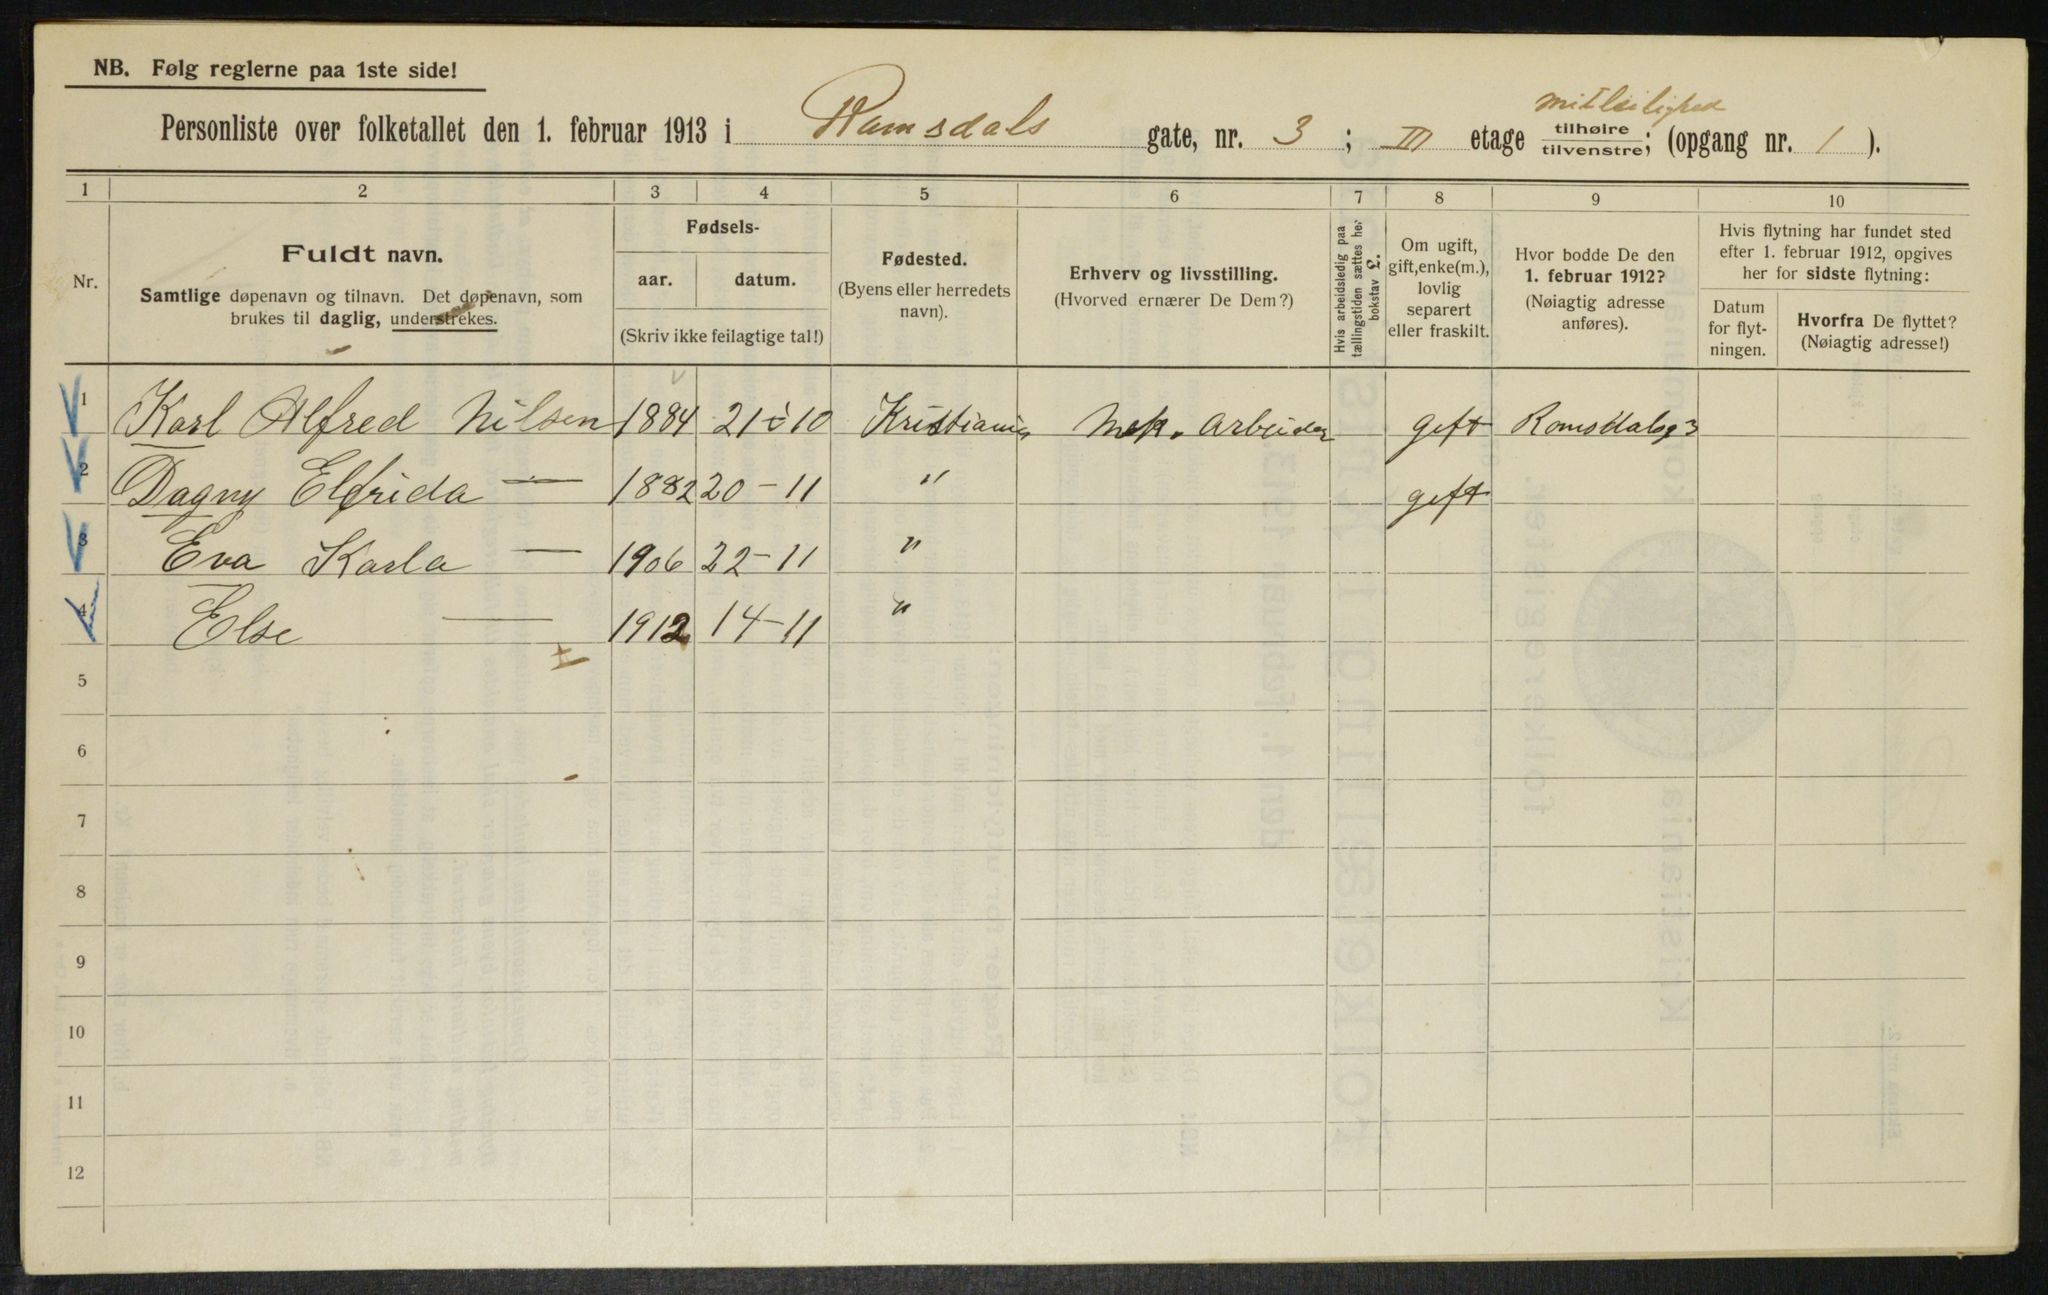 NB. Følg reglerne paa 1ste side!
Personliste over folketallet den 1. februar 1913 i Ramsdals gate, nr. 3; III etage tilhøire tilvenstre; (opgang nr. 1).
1 2 3 4 5 6 7 8 9 10
Nr.
Fuldt navn.
Samtlige døpenavn og tilnavn. Det døpenavn, som
brukes til daglig, understrekes.
Fødsels-
aar.
datum.
(Skriv ikke feilagtige tal!)
Fødested.
(Byens eller herredets
navn).
Erhverv og livsstilling.
(Hvorved ernærer De Dem?)
Hvis arbeidsledig paa
tællingstiden sættes her
bokstav L.
Om ugift,
gift, enke(m.),
lovlig
separert
eller fraskilt.
Hvor bodde De den
1. februar 1912?
(Nøiagtig adresse
anføres).
Hvis flytning har fundet sted
efter 1. februar 1912, opgives
her for sidste flytning:
Datum
for flyt-
ningen.
Hvorfra De flyttet?
(Nøiagtig adresse!)
1 Karl Alfred Nilsen 1884 21-10 Kristiania Mek. Arbeider geft Romsdalsg 3
2 Dagny Elfrida — 1882 20-11 " geft
3 Eva Karla — 1906 22-11 "
4 Else — 1912 14-11 "
5
6
7
8
9
10
11
12